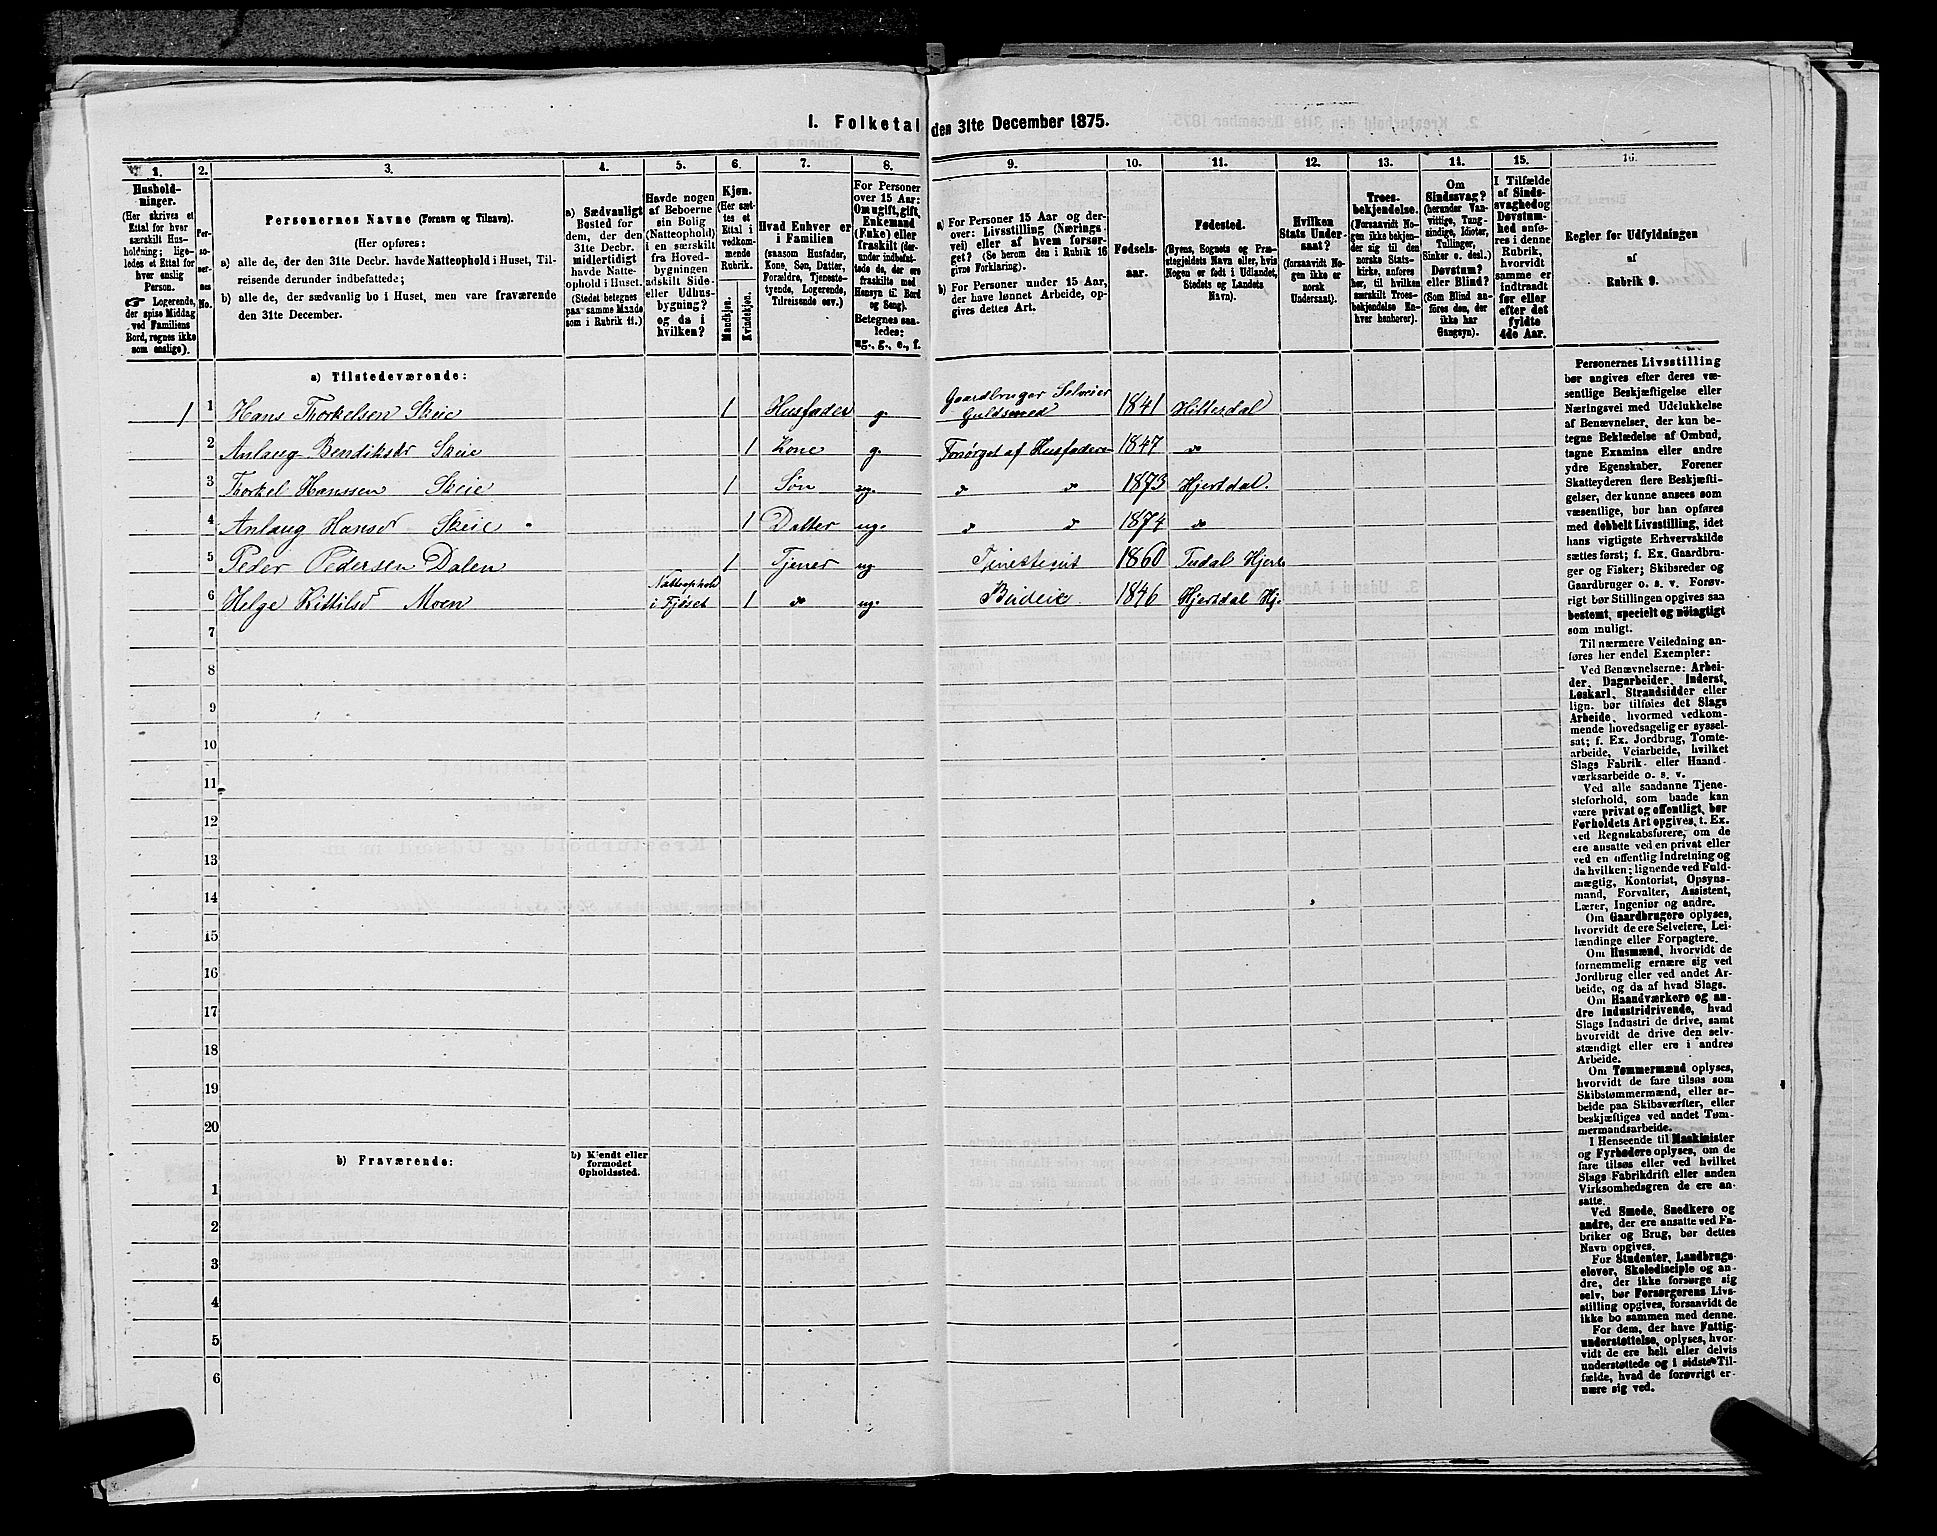 I. Folketal den 31te December 1875.
1. 2. 3. 4. 5. 6. 7. 8. 9. 10. 11. 12. 13. 14. 15. 16.
Hushold-
ninger.
(Her skrives et
Ettal for hver
særskilt Hus-
holdning; lige-
ledes et Ettal for
hver enslig
Person.
☞ Logerende,
der spise Middag
ved Familiens
Bord, regnes ikke
som enslige).
Per-
so-
ner-
nes
No.
Personernes Navne (Fornavn og Tilnavn).
(Her opføres:
a) alle de, der den 31te Decbr. havde Natteophold i Huset, Til-
reisende derunder indbefattede;
b) alle de, der sædvanlig bo i Huset, men vare fraværende
den 31te December.
a) Sædvanligt
Bosted for
dem, der den
31te Decbr.
midlertidigt
havde Natte-
ophold i Huset.
(Stedet betegnes
paa samme Maade
som i Rubrik 11.)
Havde nogen
af Beboerne
sin Bolig
(Natteophold)
i en særskilt
fra Hoved-
bygningen
adskilt Side-
eller Udhus-
bygning?
og da i
hvilken?
Kjøn.
(Her sæt-
tes et
Ettal i
vedkom-
mende
Rubrik.
Mandkjøn.
Kvindekjøn.
Hvad Enhver er
i Familien
(saasom Husfader,
Kone, Søn, Datter,
Forældre, Tjeneste-
tyende, Logerende,
Tilreisende osv.)
For Personer
over 15 Aar:
Om ugift, gift,
Enkemand
(Enke) eller
fraskilt (der-
under indbefat-
tede de, der ere
fraskilte med
Hensyn til Bord
og Seng).
Betegnes saa-
ledes:
ug., g., e., f.
a) For Personer 15 Aar og der-
over: Livsstilling (Nærings-
vei) eller af hvem forsør-
get? (Se herom den i Rubrik 16
givne Forklaring).
b) For Personer under 15 Aar,
der have lønnet Arbeide, op-
gives dettes Art.
Fødsels-
aar.
Fødested.
(Byens, Sognets og Præ-
stegjeldets Navn eller, hvis
Nogen er født i Udlandet,
Stedets og Landets
Navn).
Hvilken
Stats Under-
saat?
(forsaavidt No-
gen ikke er
norsk
Undersaat).
Troes-
bekjendelse.
(Forsaavidt No-
gen ikke bekjen-
der sig til den
norske Stats-
kirke, anføres
her, til hvilken
særskilt Troes-
bekjendelse En-
hver henhører).
Om
Sindssvag?
(herunder Van-
vittige, Tung-
sindige, Idioter,
Tullinger,
Sinker o. desl.)
Døvstum?
eller Blind?
(Som Blind an-
føres den, der
ikke har
Gangsyn).
I Tilfælde
af Sinds-
svaghed og
Døvstum-
hed anfø-
res i denne
Rubrik,
hvorvidt
samme er
indtraadt
før eller
efter det
fyldte
4de Aar.
Regler for Udfyldningen
af
Rubrik 9.
a) Tilstedeværende:
1 1 Hans Thorkelsen Skeie 1 Husfader g. Gaardbruger Selveier Guldsmed 1841 Hitterdal
2 Anlaug Bendiksd Skeie 1 Kone g. Forsørget af Husfaderen 1847 do
3 Thorkel Hanssen Skeie 1 Søn ug. do do 1873 Hjertdal.
4 Anlaug Hansd Skeie 1 Datter ug. do do 1874 do
5 Peder Pedersen Dalen 1 Tjener ug 1860 Tudal Hjert.
6 Helge Kittilsd Moen Natteophold i Fjøset 1 do ug. Budeie 1846 Hjertdal Hj.
7
8
9
10
11
12
13
14
15
16
17
18
19
20
b) Fraværende:
b) Kjendt eller
formodet
Opholdssted.
1
2
3
4
5
6
Personernes Livsstilling
bør angives efter deres væ-
sentlige Beskjæftigelse eller
Næringsvei med Udelukkelse
af Benævnelser, der kun be-
tegne Beklædelse af Ombud,
tagne Examina eller andre
ydre Egenskaber. Forener
Skatteyderen flere Beskjæfti-
gelser, der kunne ansees som
væsentlige, bør han opføres
med dobbelt Livsstilling, idet
hans vigtigste Erhvervskilde
sættes først; f. Ex. Gaardbru-
ger og Fisker; Skibsreder og
Gaardbruger o. s. v. Forøv-
rigt bør Stillingen opgives saa
bestemt, specielt og nöiagtigt
som muligt.
Til nærmere Veiledning an-
føres her endel Exempler:
Ved Benævnelserne: Arbei-
der, Dagarbeider, Inderst,
Løskarl, Strandsidder eller
lign. bør tilføies det Slags
Arbeide, hvormed vedkom-
mende hovedsagelig er syssel-
sat; f. Ex. Jordbrug, Tomte-
arbeide, Veiarbeide, hvilket
Slags Fabrik- eller Haand-
værksarbeide o. s. v.
Ved alle saadanne Tjene-
steforhold, som baade kan
være privat og offentligt, bør
Forholdets Art opgives, t. Ex.
ved Regnskabsførere, om de
ere ansatte ved en privat eller
ved en offentlig Indretning og
da hvilken; lignende ved Fuld-
mægtig, Kontorist, Opsyns-
mand, Forvalter, Assistent,
Lærer, Ingeniør og andre.
Om Gaardbrugere oplyses,
hvorvidt de ere Selveiere, Lei-
lændinge eller Forpagtere.
Om Husmænd, hvorvidt de
fornemmelig ernære sig ved
Jordbrug eller ved andet Ar-
beide, og da af hvad Slags.
Om Haandværkere og an-
dre industridrivende, hvad
Slags Industri de drive, samt
hvorvidt de drive den selv-
stændigt eller ere i andres
Arbeide.
Om Tømmermænd oplyses,
hvorvidt de fare tilsøs som
Skibstømmermænd, eller ar-
beide paa Skibsværfter, eller
beskjæftiges ved andet Tøm-
mermandsarbeide.
I Henseende til Maskinister
og Fyrbødere oplyses, om de
fare tilsøs eller ved hvilket
Slags Fabrikdrift eller anden
Virksomhedsgren de ere an-
satte.
Ved Smede, Snedkere og
andre, der ere ansatte ved Fa-
briker og Brug, bør dettes
Navn opgives.
For Studenter, Landbrugs-
elever, Skoledisciple og an-
dre, der ikke forsørge sig
selv, bør Forsørgerens Livs-
stilling opgives, forsaavidt de
ikke bo sammen med denne.
For dem, der have Fattig-
understøttelse, oplyses, hvor-
vidt de ere helt eller delvis
understøttede og i sidste Til-
fælde, hvad de forøvrigt er-
nære sig ved.